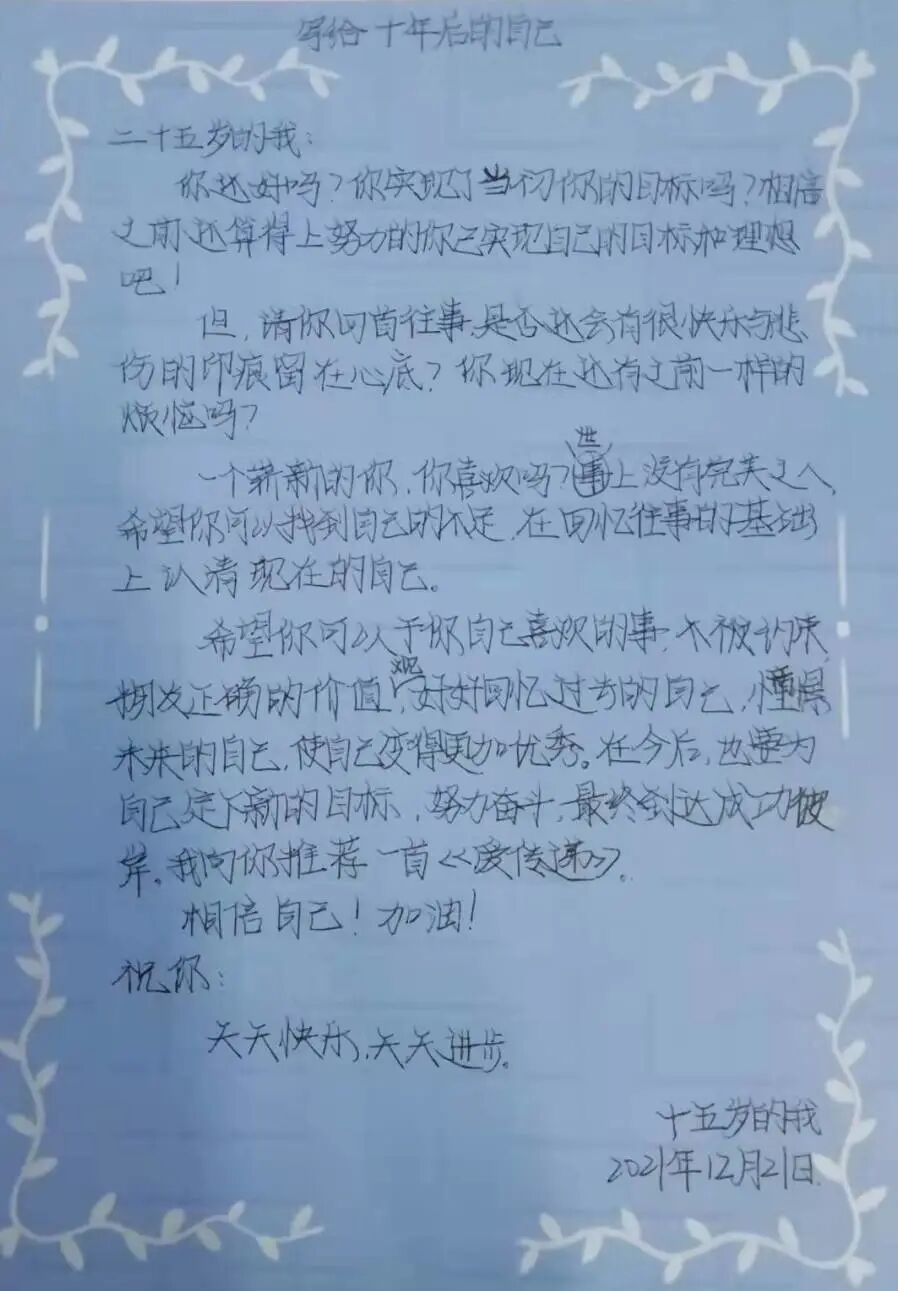 写给十年后的自己
二十五岁的我：
你还好吗？你实现了当初你的目标吗？相信
之前还算得上努力的你已实现自己的目标和理想
吧！
但，请你回首往事，是否还会有很快乐与悲
伤的印痕留在心底？你现在还有之前一样的
烦恼吗？
一个崭新的你，你喜欢吗？世上没有完美之人，
希望你可以找到自己的不足，在回忆往事的基础
上认清现在的自己。
希望你可以干你自己喜欢的事，不被约束，
拥友正确的价值观，好好回忆过去的自己，憧憬
未来的自己，使自己变得更加优秀。在今后，也要为
自己定下新的目标，努力奋斗，最终到达成功彼
岸。我向你推荐一首《爱传递》。
相信自己！加油！
祝你：
天天快乐，天天进步。
十五岁的我
2021年12月21日